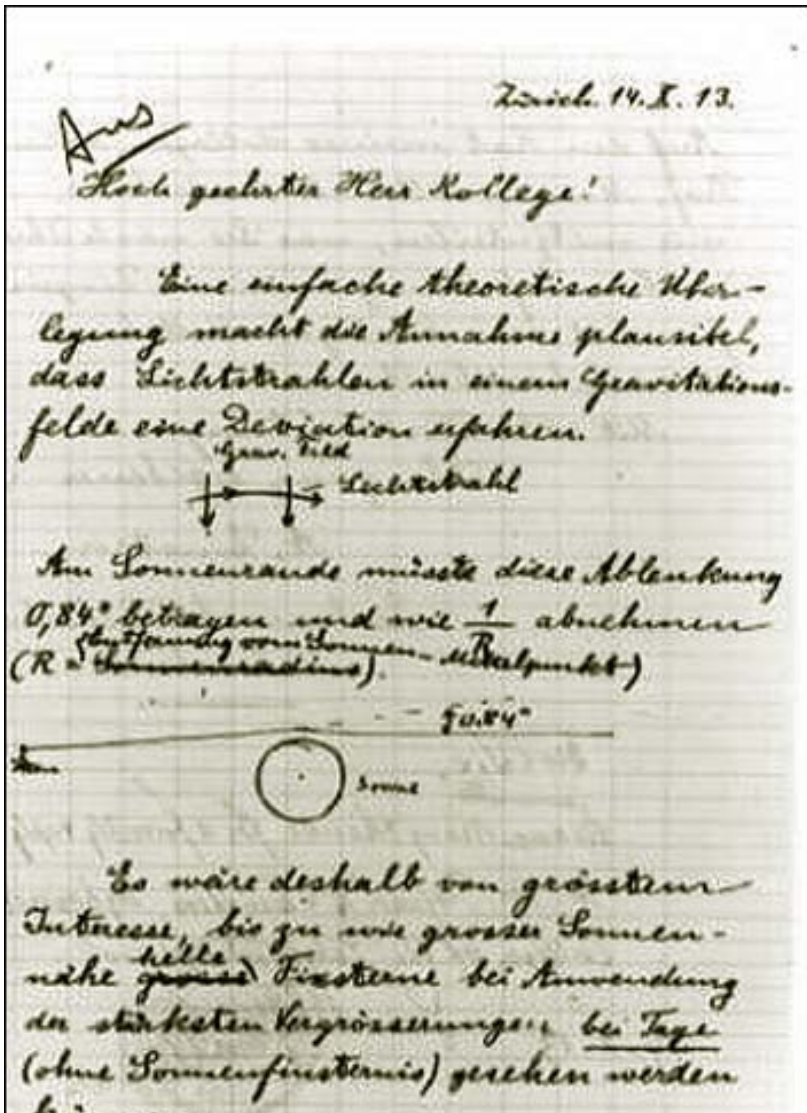 Zürich. 14. X. 13.
Aus
Hoch geehrter Herr Kollege!
Eine einfache theoretische Über-
legung macht die Annahme plausibel,
dass Lichtstrahlen in einem Gravitations-
felde eine Deviation erfahren.
Grav. Feld
Lichtstrahl
Am Sonnenrande müsste diese Ablenkung
0,84" betragen und wie 1/R abnehmen
(R = Sonnenradius Entfernung vom Sonnen-Mittelpunkt).
0.84"
Stern
Sonne
Es wäre deshalb von grösstem
Interesse, bis zu wie grosser Sonnen-
nähe grosse helle Fixsterne bei Anwendung
der stärksten Vergrösserungen bei Tage
(ohne Sonnenfinsternis) gesehen werden